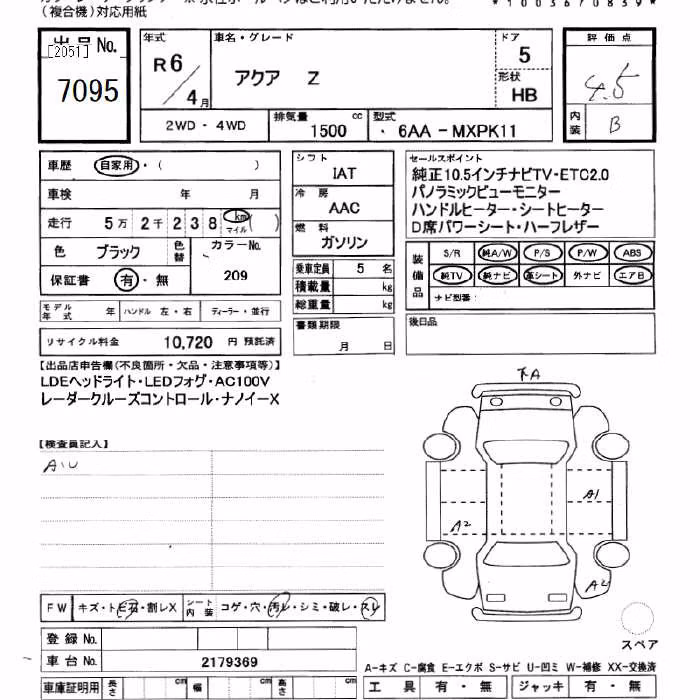 (複合機)対応用紙
出品No.
[2051]
7095
年式
R6/4月
車名・グレード
アクア Z
ドア
5
形状
HB
評価点
4.5
内装
B
2WD・4WD
排気量
1500 cc
型式
・6AA-MXPK11
車歴 自家用・( )
車検 年 月
走行 5万2千238 km マイル ( )
色 ブラック 色替
カラーNo.
209
保証書 有・無
シフト
IAT
冷房
AAC
燃料
ガソリン
乗車定員 5 名
積載量 kg
総重量 kg
書類期限
月 日
セールスポイント
純正10.5インチナビTV・ETC2.0
パノラミックビューモニター
ハンドルヒーター・シートヒーター
D席パワーシート・ハーフレザー
装備品
S/R 純A/W P/S P/W ABS
純TV 純ナビ 革シート 外ナビ エアB
ナビ型番:
モデル年式 年 ハンドル 左・右 ディーラー・並行
リサイクル料金 10,720 円 預託済
後日品
【出品店申告欄(不良箇所・欠品・注意事項等)】
LDEヘッドライト・LEDフォグ・AC100V
レーダークルーズコントロール・ナノイーX
【検査員記入】
A・U
A
A1
A2
A2
FW キズ・トビ石・割レX シート内装 コゲ・穴・汚レ・シミ・破レ・スレ
登録No.
車台No. 2179369
スペア
A-キズ C-腐食 E-エクボ S-サビ U-凹ミ W-補修 XX-交換済
車庫証明用 長さ cm 幅 cm 高さ cm
工具 有・無 ジャッキ 有・無